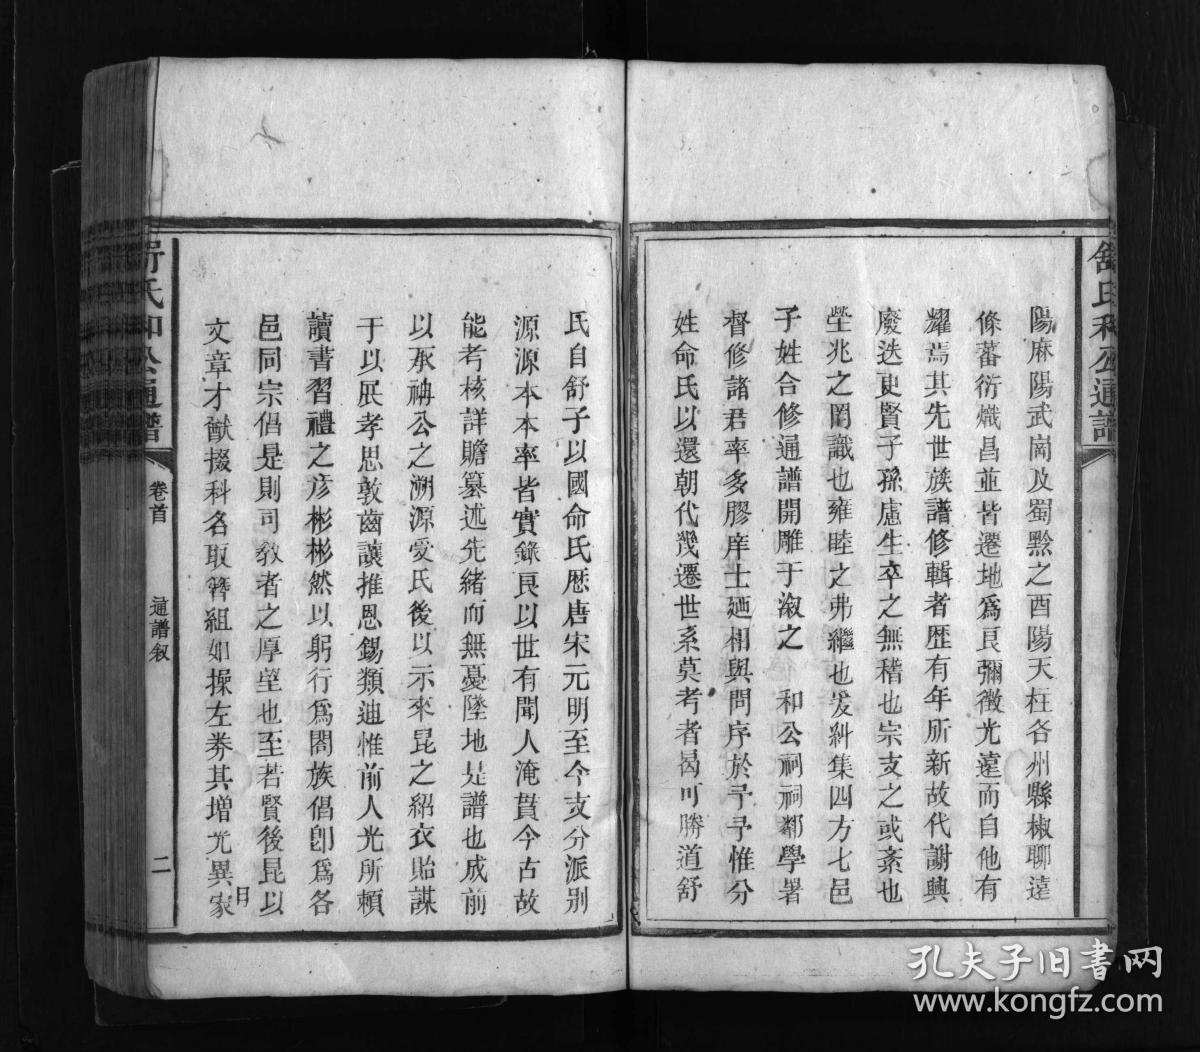 舒氏和公通譜
陽麻陽武岡及蜀黔之酉陽天柱各州縣椒聊遠
條蕃衍熾昌並皆遷地爲良彌徵光遠而自他有
耀焉其先世族譜修輯者歷有年所新故代謝興
廢迭更賢子孫慮生卒之無稽也宗支之或紊也
塋兆之罔識也雍睦之弗繼也爰糾集四方七邑
子姓合修通譜開雕于溆之　和公祠祠鄰學署
督修諸君率多膠庠士廼相與問序於予予惟分
姓命氏以還朝代幾遷世系莫考者曷可勝道舒
氏自舒子以國命氏歷唐宋元明至今支分派別
源源本本率皆實錄良以世有聞人淹貫今古故
能考核詳贍纂述先緒而無憂墜地是譜也成前
以承禂公之溯源爰氏後以示來昆之紹衣貽謀
于以展孝思敦齒讓推恩錫類迪惟前人光所願
讀書習禮之彥彬彬然以躬行爲闔族倡卽爲各
邑同宗倡是則司敎者之厚望也至若賢後昆以
文章才猷掇科名取簪組如操左券其增光異家
舒氏和公通譜
卷首
通譜叙
二
孔夫子旧书网
www.kongfz.com